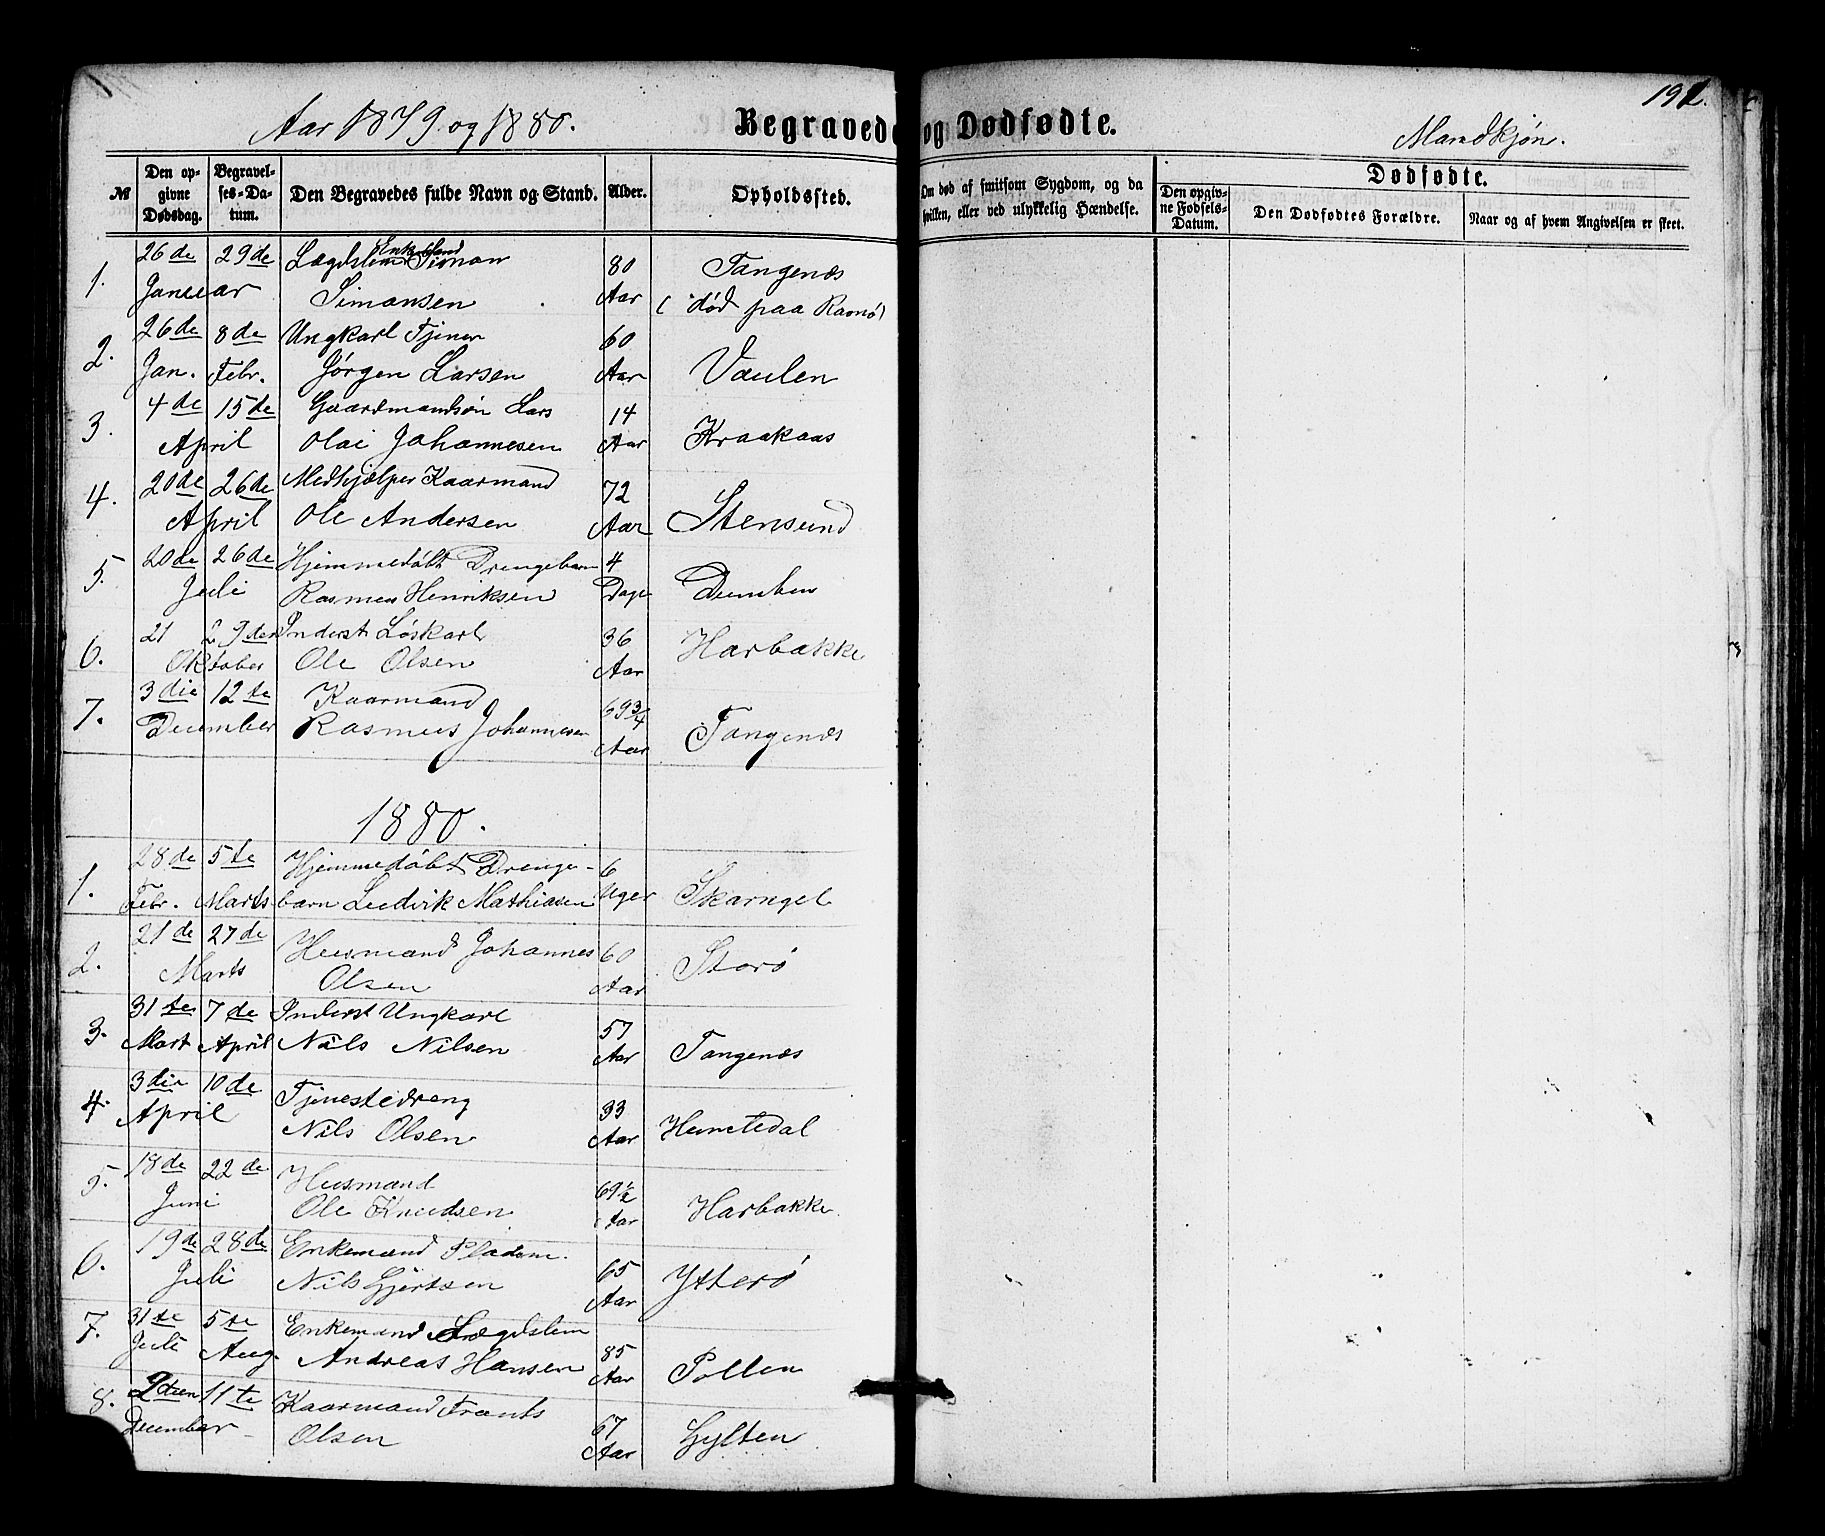 Aar 1879 og 1880. Begravede og Dødfødte. Mandkjøn. 191.
№ Den opgivne Dødsdag. Begravelses-Datum. Den Begravedes fulde Navn og Stand. Alder. Opholdssted. Om død af smitsom Sygdom, og da hvilken, eller ved ulykkelig Hændelse. Dødfødte.
Den opgivne Fødsels-Datum. Den Dødfødtes Forældre. Naar og af hvem Angivelsen er skeet.
1. 26de 29de Lægdslem Enkemand Simon 80 Tangenæs
Januar Simonsen Aar (død paa Ramsø)
2. 26de 8de Ungkarl Tjener 60
Jan. Febr. Jørgen Larsen Aar Vaulen
3. 4de 15de Gaardmandsøn Lars 14
April Olai Johannesen Aar Kraakaas
4. 20de 26de Medhjælper Kaarmand 72
April Ole Andersen Aar Stensund
5. 20de 26de Hjemmedøbt Drengebarn 4
Juli Rasmus Henriksen Dage
6. 21 29de Inderst Løskarl 36 Harbakke
Oktober Ole Olsen Aar
7. 3die 12te Kaarmand 69¾
December Rasmus Johannesen Aar Tangenæs
1880.
1. 28de 5te Hjemmedøbt Drenge- 6
Febr. Marts barn Ludvik Mathiasen Uger
2. 21de 27de Husmand Johannes 60 Storø
Marts Olsen Aar
3. 31te 7de Inderst Ungkarl 57
Mart April Nils Nilsen Aar Tangenæs
4. 3die 10de Tjenestedreng 33
April Nils Olsen Aar
5. 18de 22de Husmand 69½
Juni Ole Knudsen Aar Harbakke
6. 19de 28de Enkemand Pladsm. 65
Juli Nils Gjertsen Aar Ytterø
7. 31te 5te Enkemand Lægdslem 85
Juli Aug. Andreas Hansen Aar Pollen
8. 2den 11te Kaarmand Frants 67
December Olsen Aar Gylten